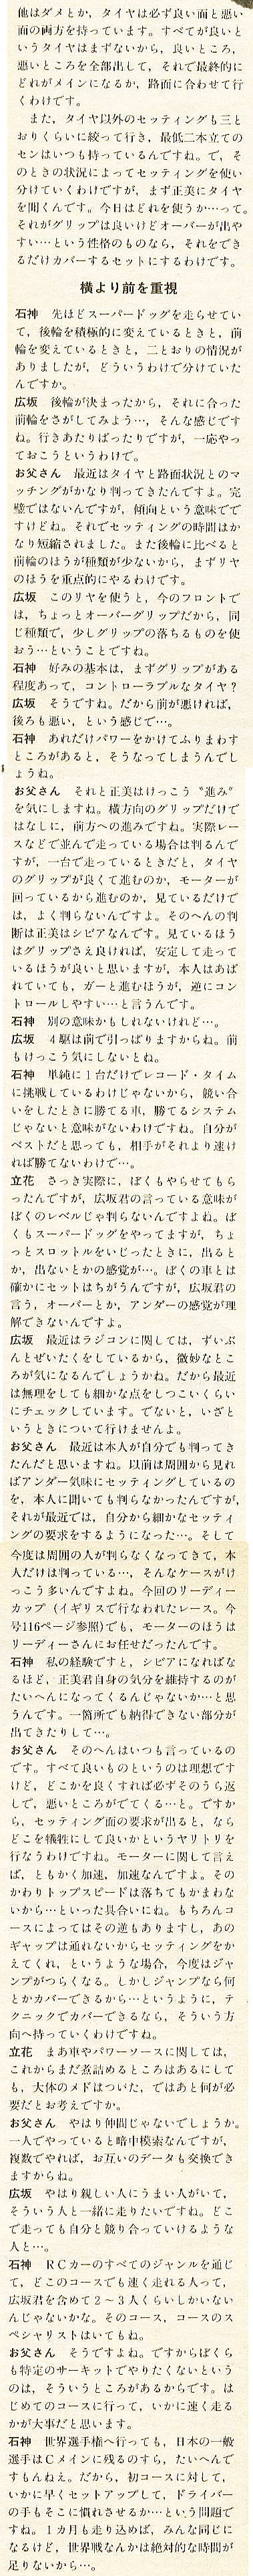 他はダメとか、タイヤは必ず良い面と悪い
面の両方を持っています。すべてが良いと
いうタイヤはまずないから、良いところ、
悪いところを全部出して、それで最終的に
どれがメインになるか、路面に合わせて行
くわけです。
また、タイヤ以外のセッティングも三と
おりくらいに絞って行き、最低二本立ての
センはいつも持っているんですね。で、そ
のときの状況によってセッティングを使い
分けていくわけですが、まず正美にタイヤ
を聞くんです。今日はどれを使うか…って。
それがグリップは良いけどオーバーが出や
すい…という性格のものなら、それをでき
るだけカバーするセットにするわけです。
横より前を重視
石神 先ほどスーパードッグを走らせてい
て、後輪を積極的に変えているときと、前
輪を変えているときと、二とおりの情況が
ありましたが、どういうわけで分けていた
んですか。
広坂 後輪が決まったから、それに合った
前輪をさがしてみよう…、そんな感じです
ね。行きあたりばったりですが、一応やっ
ておこうというわけで。
お父さん 最近はタイヤと路面状況とのマ
ッチングがかなり判ってきたんですよ。完
璧ではないんですが、傾向という意味でで
すけどね。それでセッティングの時間はか
なり短縮されました。また後輪に比べると
前輪のほうが種類が少ないから、まずリヤ
のほうを重点的にやるわけです。
広坂 このリヤを使うと、今のフロントで
は、ちょっとオーバーグリップだから、同
じ種類で、少しグリップの落ちるものを使
おう…ということですね。
石神 好みの基本は、まずグリップがある
程度あって、コントローラブルなタイヤ？
広坂 そうですね。だから前が悪ければ、
後ろも悪い、という感じで…。
石神 あれだけパワーをかけてふりまわす
ところがあると、そうなってしまうんでし
ょうね。
お父さん それと正美はけっこう〝進み〟
を気にしますね。横方向のグリップだけで
はなしに、前方への進みですね。実際レー
スなどで並んで走っている場合は判るんで
すが、一台で走っているときだと、タイヤ
のグリップが良くて進むのか、モーターが
回っているから進むのか、見ているだけで
は、よく判らないんですよ。そのへんの判
断は正美はシビアなんです。見ているほう
はグリップさえ良ければ、安定して走って
いるほうが良いと思いますが、本人はあば
れていても、ガーと進むほうが、逆にコン
トロールしやすい…と言うんです。
石神 別の意味かもしれないけれど…。
広坂 4駆は前で引っぱりますからね。前
もけっこう気にしないとね。
石神 単純に1台だけでレコード・タイム
に挑戦しているわけじゃないから、競い合
いをしたときに勝てる車、勝てるシステム
じゃないと意味がないわけですね。自分が
ベストだと思っても、相手がそれより速け
れば勝てないわけで…。
立花 さっき実際に、ぼくもやらせてもら
ったんですが、広坂君の言っている意味が
ぼくのレベルじゃ判らないんですよね。ぼ
くもスーパードッグをやってますが、ちょ
っとスロットルをいじったときに、出ると
か、出ないとかの感覚が…。ぼくの車とは
確かにセットはちがうんですが、広坂君の
言う、オーバーとか、アンダーの感覚が理
解できないんですよ。
広坂 最近はラジコンに関しては、ずいぶ
んとぜいたくをしているから、微妙なとこ
ろが気になるんでしょうかね。だから最近
は無理をしても細かな点をしつこいくらい
にチェックしています。でないと、いざと
いうときについて行けませんよ。
お父さん 最近は本人が自分でも判ってき
たんだと思いますね。以前は周囲から見れ
ばアンダー気味にセッティングしているの
を、本人に聞いても判らなかったんですが、
それが最近では、自分から細かなセッティ
ングの要求をするようになった…。そして
今度は周囲の人が判らなくなってきて、本
人だけは判っている…、そんなケースがけ
っこう多いんですよね。今回のリーディー
カップ（イギリスで行なわれたレース。今
号116ページ参照）でも、モーターのほうは
リーディーさんにお任せだったんです。
石神 私の経験ですと、シビアになればな
るほど、正美君自身の気分を維持するのが
たいへんになってくるんじゃないか…と思
うんです。一箇所でも納得できない部分が
出てきたりして…。
お父さん そのへんはいつも言っているの
です。すべて良いものというのは理想です
けど、どこかを良くすれば必ずそのうら返
しで、悪いところがでてくる…と。ですか
ら、セッティング面の要求が出ると、なら
どこを犠牲にして良いかというヤリトリを
行なうわけですね。モーターに関して言え
ば、ともかく加速、加速なんですよ。その
かわりトップスピードは落ちてもかまわな
いから…といった具合いにね。もちろんコ
ースによってはその逆もありますし、あの
ギャップは通れないからセッティングをか
えてくれ、というような場合、今度はジャ
ンプがつらくなる。しかしジャンプなら何
とかカバーできるから…というように、テ
クニックでカバーできるなら、そういう方
向へ持っていくわけですね。
立花 まあ車やパワーソースに関しては、
これからまだ煮詰めるところはあるにして
も、大体のメドはついた、ではあと何が必
要だとお考えですか。
お父さん やはり仲間じゃないでしょうか。
一人でやっていると暗中模索なんですが、
複数でやれば、お互いのデータも交換でき
ますからね。
広坂 やはり親しい人にうまい人がいて、
そういう人と一緒に走りたいですね。どこ
で走っても自分と競り合っていけるような
人と…。
石神 RCカーのすべてのジャンルを通じ
て、どこのコースでも速く走れる人って、
広坂君を含めて2～3人くらいしかいない
んじゃないかな。そのコース、コースのス
ペシャリストはいてもね。
お父さん そうですよね。ですからぼくら
も特定のサーキットでやりたくないという
のは、そういうところがあるからです。は
じめてのコースに行って、いかに速く走る
かが大事だと思います。
石神 世界選手権へ行っても、日本の一般
選手はCメインに残るのすら、たいへんで
すもんねえ。だから、初コースに対して、
いかに早くセットアップして、ドライバー
の手もそこに慣れさせるか…という問題で
すね。1カ月も走り込めば、みんな同じに
なるけど、世界戦なんかは絶対的な時間が
足りないから…。